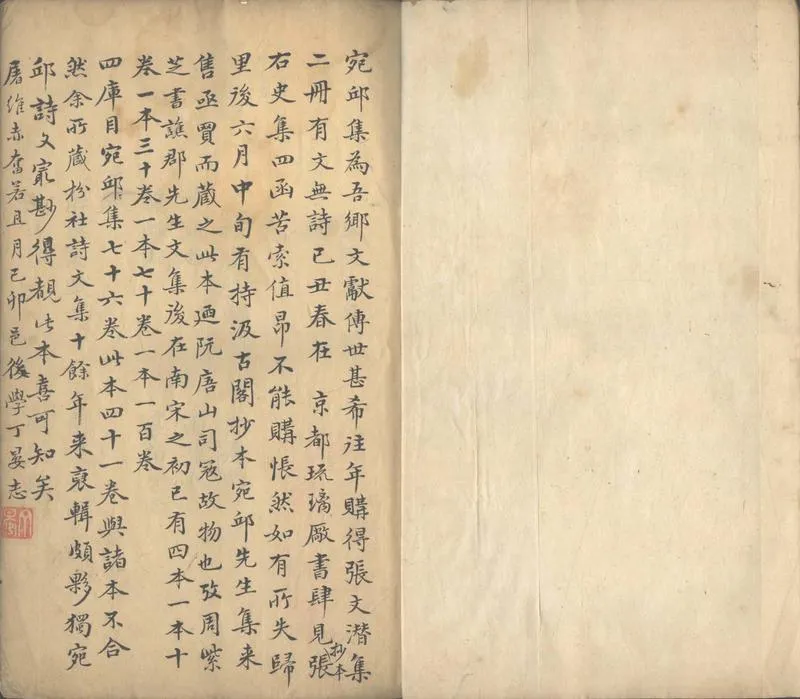 宛邱集為吾鄉文獻傳世甚希往年購得張文潛集
二冊有文無詩己丑春在 京都琉璃廠書肆見張
抄本
右史集四函苦索值昂不能購悵然如有所失歸
里後六月中旬有持汲古閣抄本宛邱先生集来
售亟買而藏之此本廼阮唐山司寇故物也攷周紫
芝書譙郡先生文集後在南宋之初已有四本一本十
卷一本三十卷一本七十卷一本一百卷
四庫目宛邱集七十六卷此本四十一卷與諸本不合
然余所藏枌社詩文集十餘年来裒輯頗夥獨宛
邱詩文寂尟得覩此本喜可知矣
屠維赤奮若且月己卯邑後學丁晏志